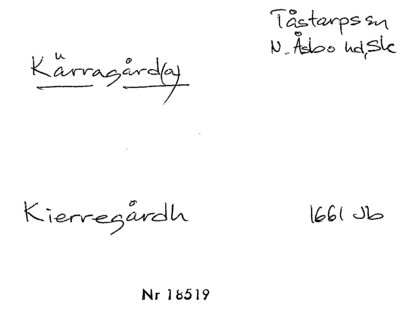 Tåstarps sn
N. Åsbo hd, Sk
Kärragård(a)
Kierregårdh 1661 Jb
Nr 18519